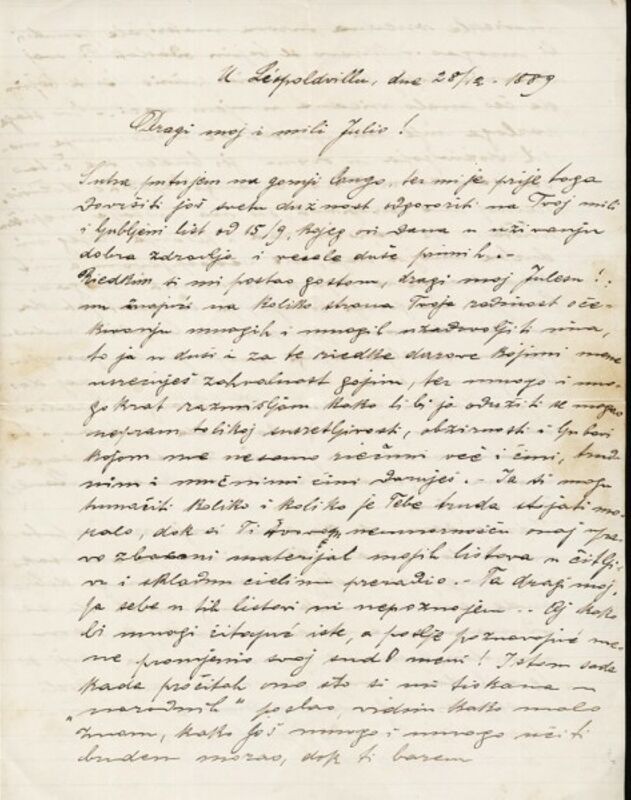 U Léopoldvillu, dne 28/12. 1889
Dragi moj i mili Julio!
Sutra putujem na gornji Congo, ter mi je prije toga
dovršiti još svetu dužnost odgovoriti na Tvoj mili
i ljubljeni list od 15/9, kojeg ovi dana u uživanju
dobra zdravlja i vesele duše primih.-
Riedkim ti mi postao gostom, dragi moj Julesu!
nu znajući na koliko strana Tvoja radinost oče-
kivanju mnogih i mnogih udovoljiti ima,
to ja u duši i za te riedke darove kojimi mene
usrećuješ zahvalnost gojim, ter mnogo i mno-
gokrat razmišljam kako li bi ja odužiti se mogao
napram tolikoj susretljivosti, obzirnosti i ljubavi
kojom me ne samo riečimi već i čini, trud-
nimi i mučnimi čini daruješ.- Ja si mogu
tumačiti koliko i koliko je Tebe truda stojati mo-
ralo, dok si Ti neumornošću onaj upra-
vo zbrkani materijal mojih listova u čitlji-
vu i skladnu cielinu preradio.- Ta dragi moj,
ja sebe u tih listovi ni nepoznajem.. Oj kako
bi mnogi čitajuć iste, a poslje poznavajuć me-
ne promjenio svoj sud o meni! Istom sada
kada pročitah ono što si mi tiskana u
"narodnih" poslao, vidim kako malo
znam, kako još mnogo i mnogo učiti
budem morao, dok ti barem